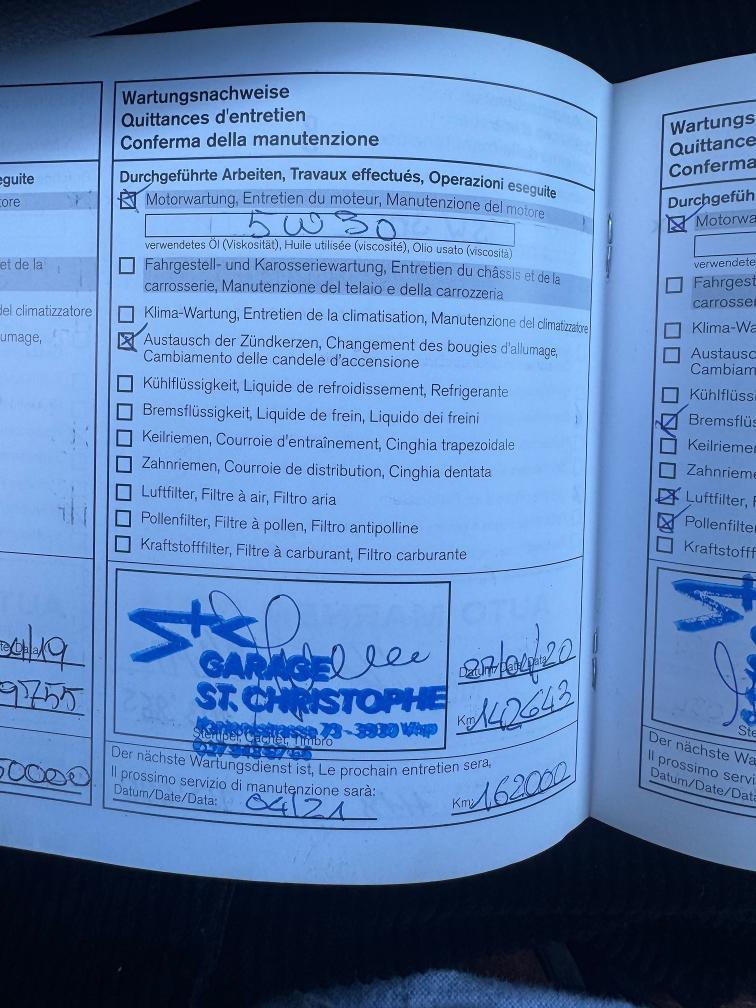 eguite
ore
et de la
del climatizzatore
umage,
04/19
9755
50000
Wartungsnachweise
Quittances d'entretien
Conferma della manutenzione
Durchgeführte Arbeiten, Travaux effectués, Operazioni eseguite
Motorwartung, Entretien du moteur, Manutenzione del motore
5W30
verwendetes Öl (Viskosität), Huile utilisée (viscosité), Olio usato (viscosità)
Fahrgestell- und Karosseriewartung, Entretien du châssis et de la
carrosserie, Manutenzione del telaio e della carrozzeria
Klima-Wartung, Entretien de la climatisation, Manutenzione del climatizzatore
Austausch der Zündkerzen, Changement des bougies d'allumage,
Cambiamento delle candele d'accensione
Kühlflüssigkeit, Liquide de refroidissement, Refrigerante
Bremsflüssigkeit, Liquide de frein, Liquido dei freini
Keilriemen, Courroie d'entraînement, Cinghia trapezoidale
Zahnriemen, Courroie de distribution, Cinghia dentata
Luftfilter, Filtre à air, Filtro aria
Pollenfilter, Filtre à pollen, Filtro antipolline
Kraftstofffilter, Filtre à carburant, Filtro carburante
GARAGE
ST. CHRISTOPHE
73 - 3930 Visp
Stempel, Cachet, Timbro
Datum/Date/Data
Km 142643
Der nächste Wartungsdienst ist, Le prochain entretien sera,
Il prossimo servizio di manutenzione sarà:
Datum/Date/Data: 04/21 Km: 162000
Wartungs
Quittance
Conferma
Durchgefüh
Motorwa
verwendete
Fahrgest
carrosser
Klima-Wa
Austausc
Cambiam
Kühlflüssi
Bremsflüs
Keilrieme
Zahnrieme
Luftfilter, F
Pollenfilter
Kraftstofff
Ste
Der nächste Wa
Il prossimo servi
Datum/Date/Data